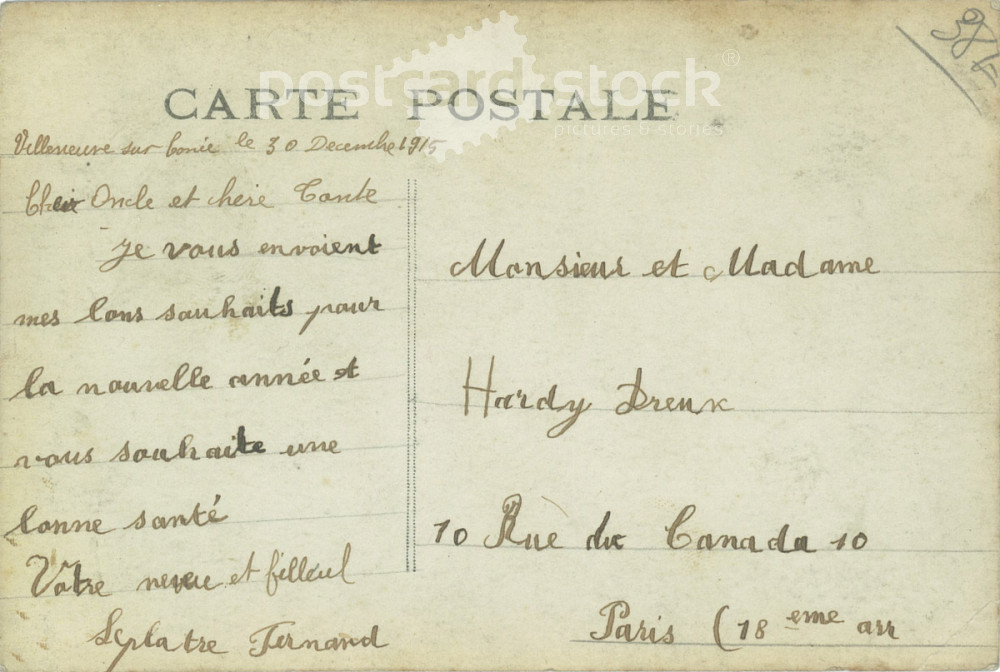 CARTE POSTALE
postcard stock ®
pictures & stories
Villeneuve sur le 30 Decembre 1915
Cher Oncle et chere Tante
Je vous envoient
mes bons souhaits pour
la nouvelle année et
vous souhaite une
bonne santé
Votre neveu et filleul
Leplatre Fernand
Monsieur et Madame
Hardy Dreux
10 Rue du Canada 10
Paris (18 eme arr